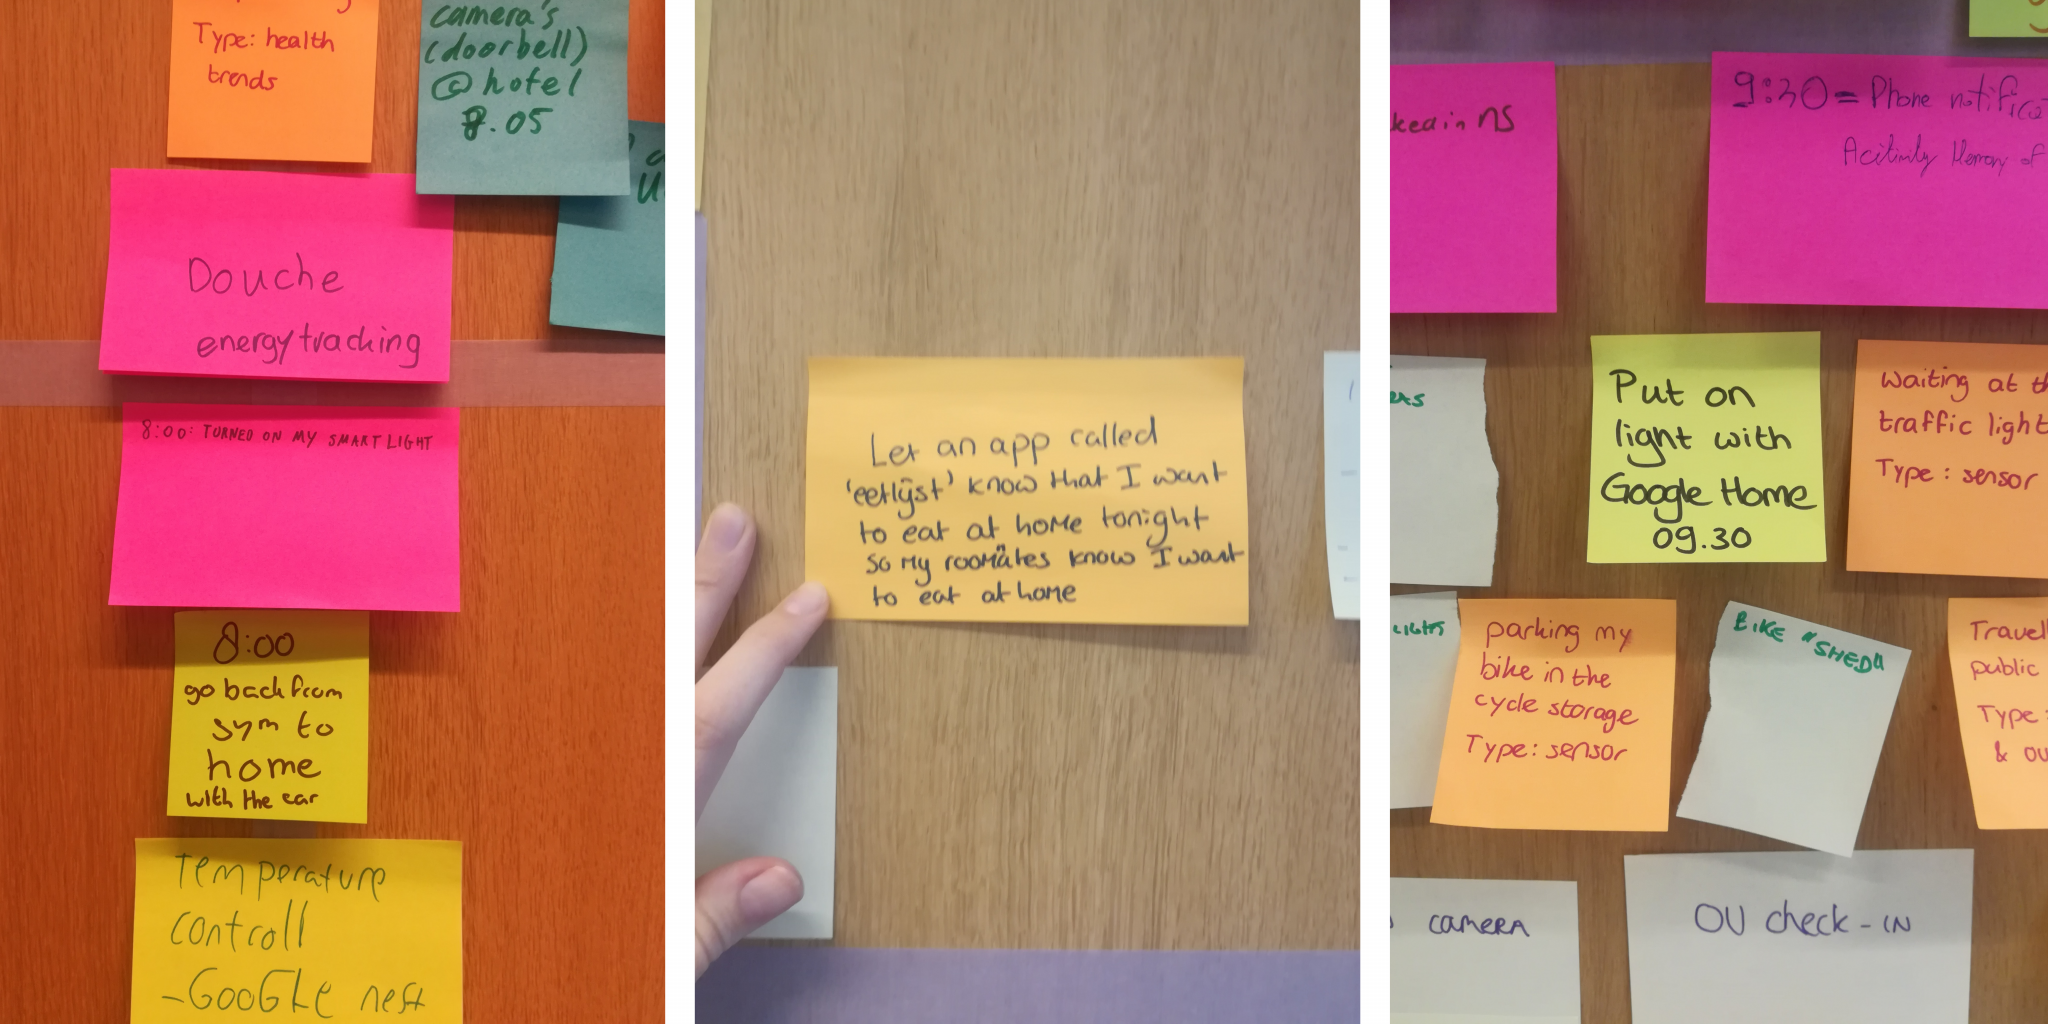 Type: health
trends
camera's
(doorbell)
@ hotel
8.05
Douche
energytracking
8:00: TURNED ON MY SMART LIGHT
8:00
go back from
gym to
home
with the car
Temperature
controll
- GOOGLE nest
Let an app called
'eetlijst' know that I want
to eat at home tonight
so my roomates know I want
to eat at home
NS
9:30 = Phone
Put on
light with
Google Home
09.30
Waiting at
traffic light
Type: sensor
parking my
bike in the
cycle storage
Type: sensor
BIKE "SHED"
public
Type
&
camera
OV check-IN